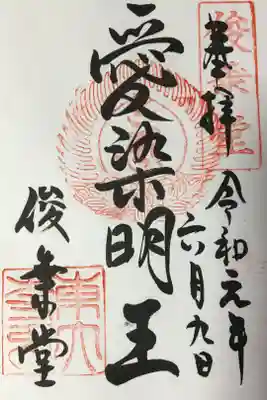 奉拝
令和元年
六月九日
愛染明王
俊乗堂
俊乗堂
東大寺